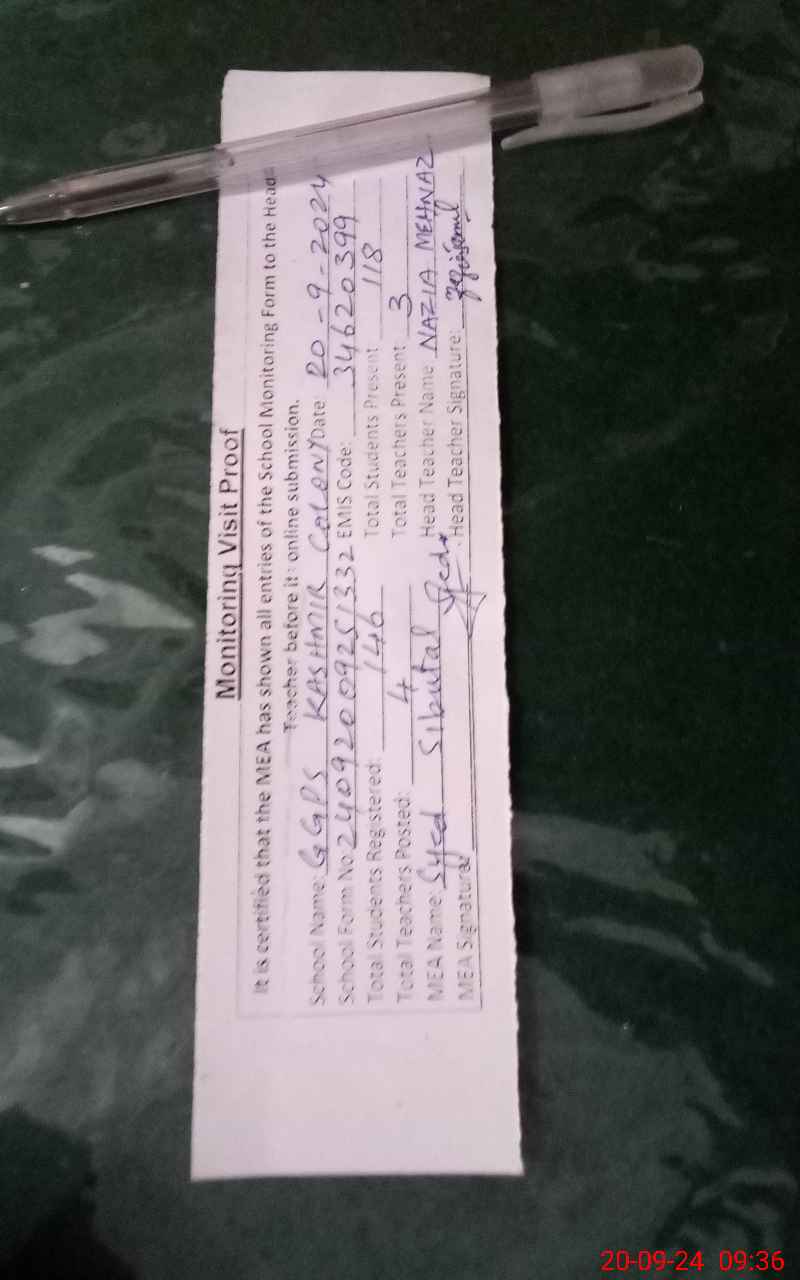 Monitoring Visit Proof
It is certified that the MEA has shown all entries of the School Monitoring Form to the Head
Teacher before it online submission.
School Name: GGPS KASHMIR COLONY Date: 20-9-2024
School Form No: 24092009251332 EMIS Code: 34620399
Total Students Registered: 146 Total Students Present 118
Total Teachers Posted: 4 Total Teachers Present 3
MEA Name: Syed Sibutal Head Teacher Name: NAZIA MEHNAZ
MEA Signature: Head Teacher Signature:
20-09-24 09:36